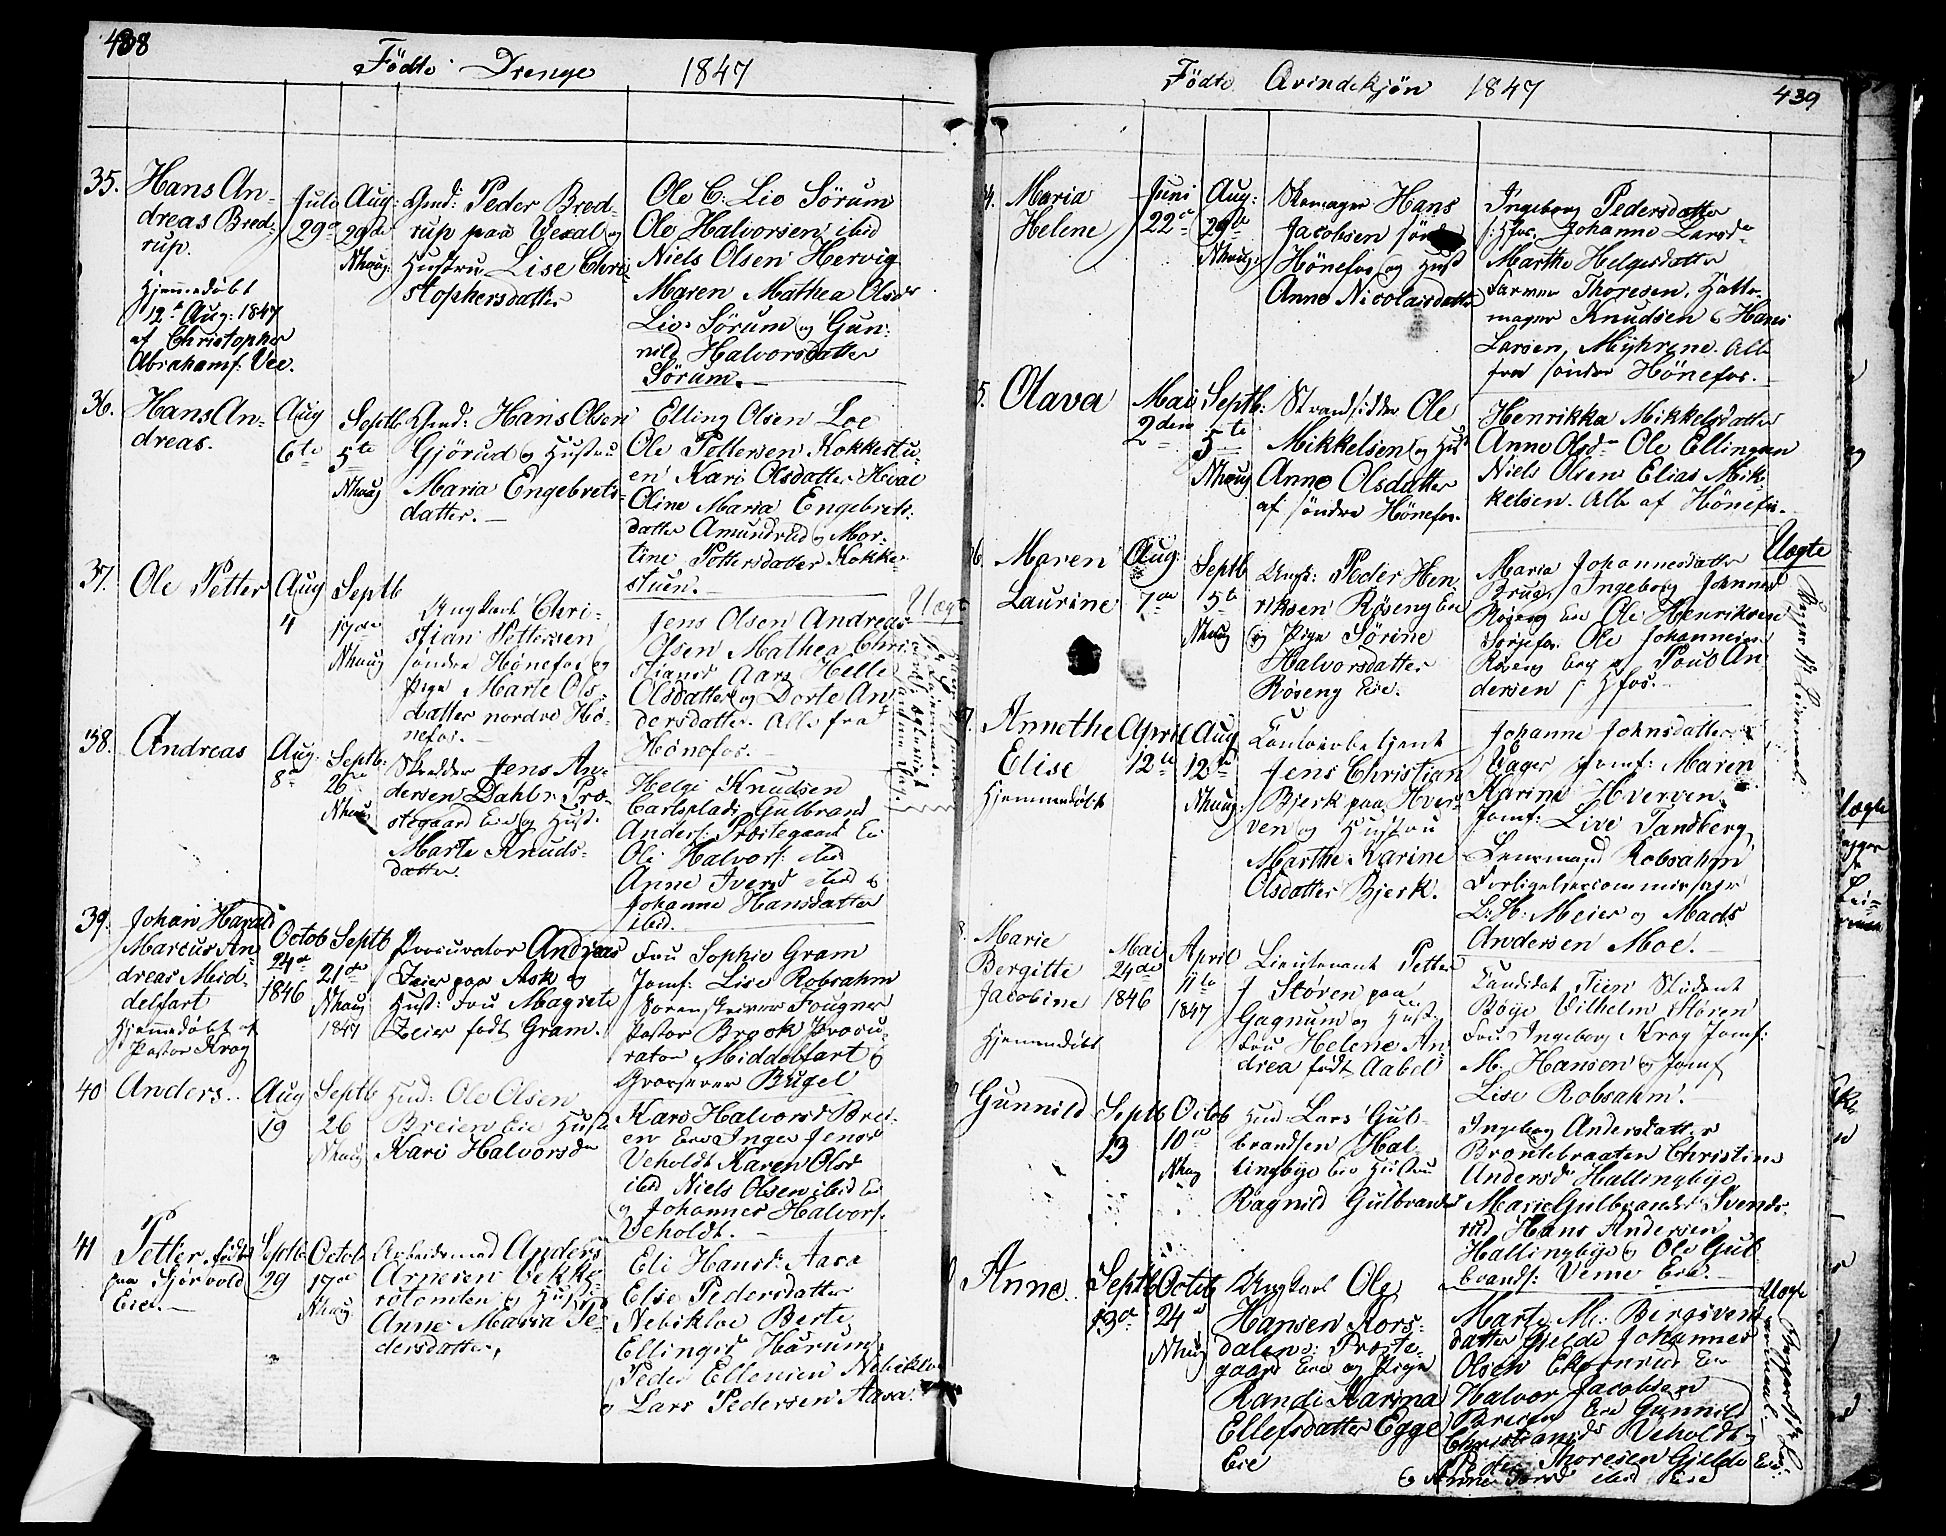 438
Födte Drenge 1847
35.
Hans An-
dreas Bred-
rup.
Hjemmedöbt
12te Aug: 1847
af Christopher
Abrahams: Vee.
Juli
29de
Aug:
29de
Nhaug
Gmd: Peder Bred-
rup paa Vexal og
Hustru Lise Chri
stophersdatter
Ole C: Lio Sörum
Ole Halvorsen ibid
Niels Olsen Hervig
Maren Mathea Olsdr
Lio Sörum og Gun-
nild Halvorsdatter
Sörum.
36.
Hans An-
dreas.
Aug
6te
Septb
5te
Nhaug
Gmd: Hans Olsen
Gjörud og Hustru
Maria Engebrets-
datter.
Elling Olsen Loe
Ole Pettersen Kokkestu-
en Kari Olsdatter Hval
Oline Maria Engebrets-
datter Amundrud og Mor-
tine Pettersdatter Kokke-
stuen.
37.
Ole Petter
Aug
4
Septb
17de
Nhaug
Ungkarl Chri-
stian Pettersen
söndre Hönefos og
Pige Marte Ols-
datter nordre Hö-
nefos.
Jens Olsen Andreas
Olsen Mathea Chri-
stiansd Aars Helle
Olsdatter og Dorte An-
dersdatter. Alle fra
Hönefos.
Uægte
38.
Andreas
Aug.
8de
Septb:
26de
Nhaug
Skrædder Jens An-
dersen Dahlr Præ-
stegaard Eie og Hust:
Marte Knuds-
datter.
Helge Knudsen
Carlsplads Gulbrand
Anders: Præstegaard Ei
Ole Halvors: ibid
Anne Iversd ibid og
Johanne Hansdatter
ibid.
39.
Johan Harald
Marcus An-
dreas Mid-
delfart
Hjemmedöbt af
Pastor Krog
Octob
24de
1846
Septb
21de
Nhaug
1847
Procurator Andreas
Zeier paa Ask og
Hust: Fru Magrete
Zeier födt Gram.
Fru Sophie Gram
Jomf: Lise Robsahm
Sorenskriver Fougner
Pastor Broch Procu-
rator Middelfart og
Grosserer Bugel
40
Anders.
Aug
19
Septb
26
Nhaug
Hmd: Ole Olsen
Breien Eie Hust
Kari Halvorsdr
Kari Halvorsd Brei-
en Eie Inger Jensd
Veholdt Karen Olsd
ibid Niels Olsen ibid Ei
og Johannes Halvors:
Veholdt.
41
Petter. födt
paa Hjörvold
Eie.
Septb
29
Octob
17de
Nhaug
Arbeidsmand Anders
Arnesen Vekke-
rotomten og Hust
Anne Maria Pe-
dersdatter,
Eli Hansd Aasa
Else Pedersdatter
Nebikloe Berte
Ellingsd Hurum
Peder Ellensen Nebiklo
og Lars Pedersen Aasa.
Födte Qvindekjön 1847
439
4.
Maria
Helene
Juni
22de
Aug:
29de
Nhaug
Skomager Hans
Jacobsen sön
Hönefos og Hust
Anne Nicolaisdatter
Ingeborg Pedersdatter
Johanne Larsdr
Marthe Helgesdatter
Farver Thoresen, Hatte-
mager Knudsen & Hans
Larsen, Myhrene. Alle
fra söndre Hönefos.
5.
Olava
Mai
2den
Septb:
5te
Nhaug
Strandsidder Ole
Mikkelsen og Hust
Anne Olsdatter
af söndre Hönefos.
Henrikka Mikkelsdatter
Anne Olsdr Ole Ellingsen
Niels Olsen Elias Mik-
kelsen. Alle af Hönefos.
6.
Maren
Laurine
Aug:
7de
Septb
5te
Nhaug
Ungk: Peder Hen
riksen Röseng Eie
og Pige Sörine
Halvorsdatter
Röseng Eie.
Maria Johannesdatter
Brug, Ingeborg Johannsd
Röseng Eie Ole Henriksen
Ole Johannesen
Röseng Eie og Poul An
dersen Hfos.
Uægte
7
Annethe
Elise
Hjemmedöbt
April
12te
Aug
12te
Nhaug:
Contoirbetjent
Jens Christian
Bjerk paa Hver-
ven og Hustru
Marthe Karine
Olsdatter Bjerk.
Johanne Johnsdatter
Vager Jomf: Maren
Karine Hverven,
Jomf: Live Tandberg,
Lensmand Robsahm
Forligelsescommissair
L: H: Meier og Mads
Andersen Moe.
8.
Marie
Bergitte
Jacobine
Hjemmedöbt
Mai
24de
1846
April
11te
1847
Lieutenant Petter
Stören paa
Gagnum og Hust
Fru Helene An
drea födt Aabel
Candidat Student
Böije Vilhelm Stören
Fru Ingeborg Krog Jomf:
M: Hansen og Jomf
Lise Robsahm.
Gunnild
Septb
13
Octob
10de
Nhaug
Hmd Lars Gul-
brandsen Hal-
lingbye Eie Hustru
Ragnild Gulbrandsd
Ingeborg Andersdatter
Brontebraaten Christine
Andersdr Hallingbye
Marie Gulbrandsd Svends-
rud Hans Andersen
Hallingbye og Ole Gul
brands: Veme Eie.
Anne.
Septb
13de
Octob
24de
Nhaug
Ungkarl Ole
Hansen Kors-
dalen: Præste-
gaard Eie og Pige
Randi Karina
Ellefsdatter Egge
Eie
Marte M: Bergsvend
datter Gjelde Johannes
Olsen Ekornrud Eie
Halvor Jacobsen
Breien Eie Gunnild
Christiansdr Veholdt
Peder Thoresen Gjelde Eie
& Anne ibid Eie
Uægte